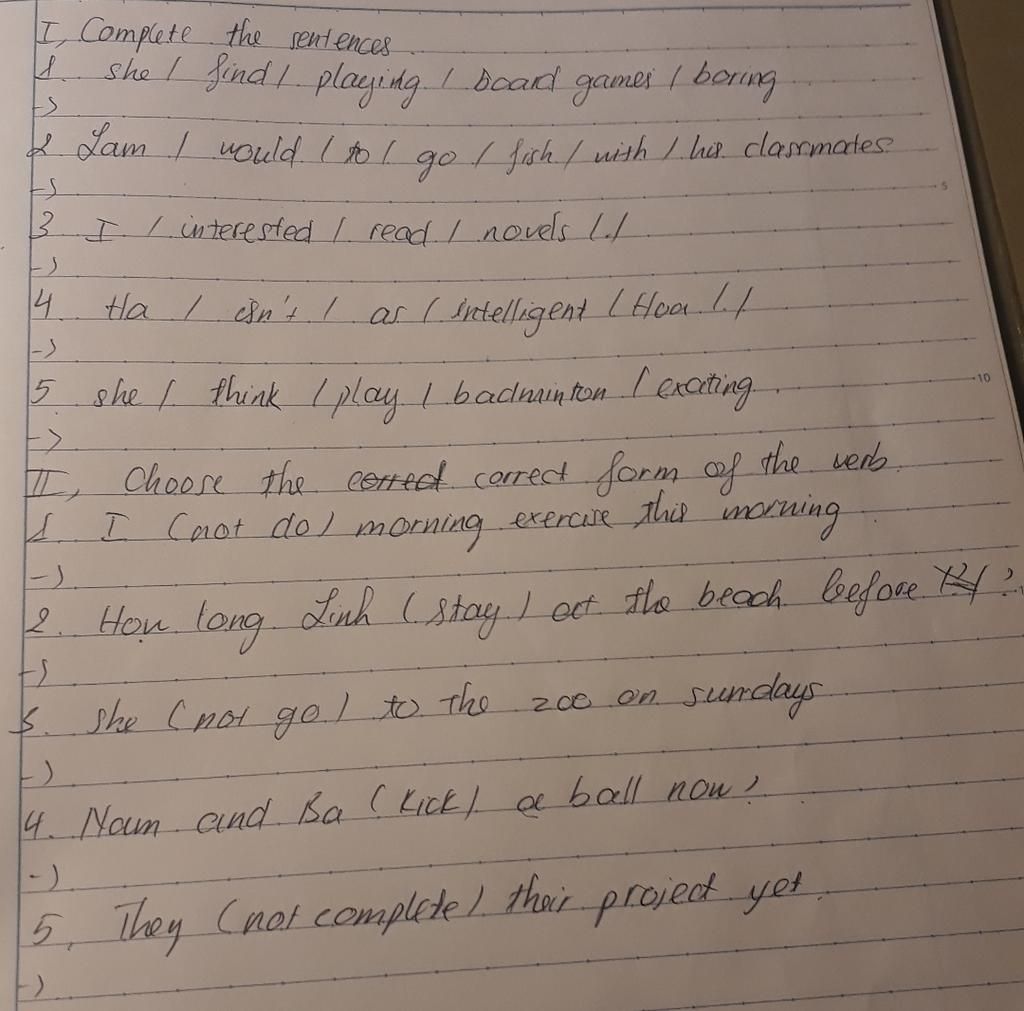 I, Complete the sentences
1. she / find / playing / board games / boring
->
2 Lam / would / to / go / fish / with / his classmates
->
3 I / interested / read / novels /./
->
4 Ha / isn't / as / intelligent / Hoa /./
->
5 she / think / play / badminton / exciting.
->
II, Choose the correct correct form of the verb.
1. I (not do) morning exercise this morning.
->
2. How long Linh (stay) at the beach before ?
->
3. she (not go) to the zoo on sundays
->
4. Nam and Ba (kick) a ball now?
->
5, They (not complete) their project yet.
->
5
10